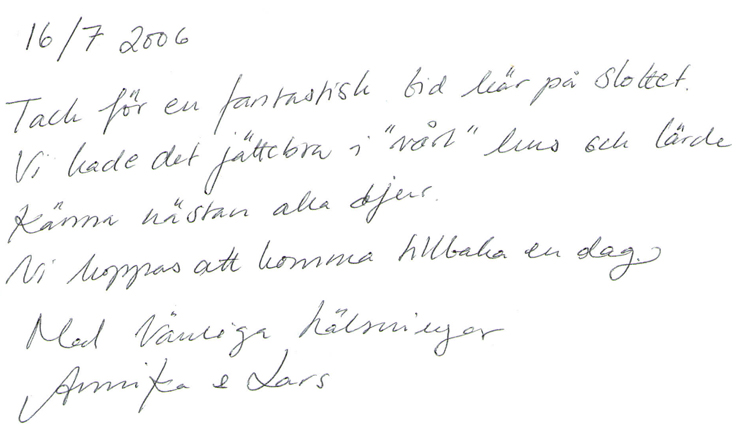 16/7 2006
Tack för en fantastisk tid här på slottet.
Vi hade det jättebra i "vårt" hus och lärde
känna nästan alla djur.
Vi hoppas att komma tillbaka en dag.
Med Vänliga hälsningar
Annika & Lars